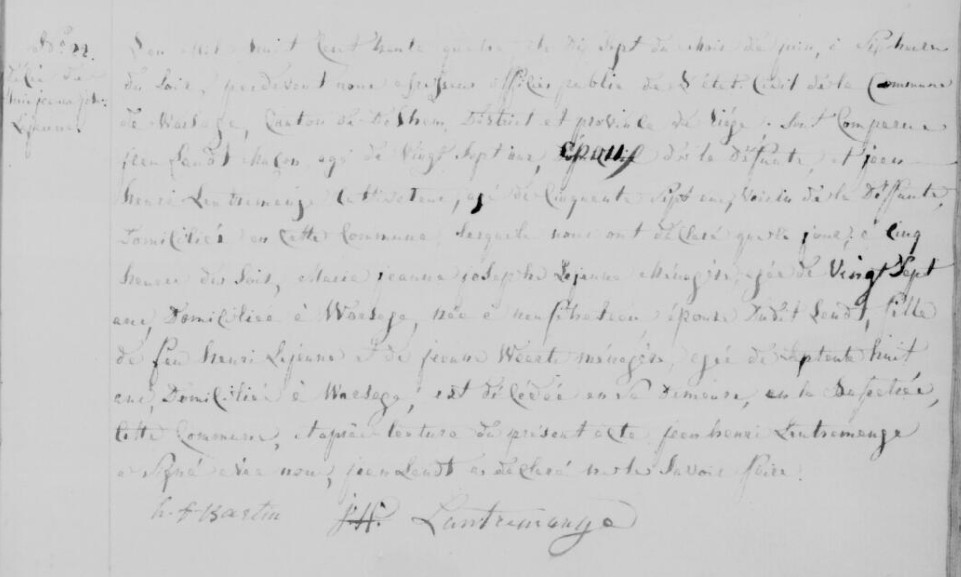 N° 22.
Décès de
Marie jeanne josephe
Lejeune
L'an mil huit Cent trente quatre, le dix sept du Mois de juin, à Sept heures
du Soir, pardevant nous officier public de l'état Civil de la Commune
de Warsage, Canton de Dolhem, District et province de Liége, Sont Comparus
jean Landt maçon agé de Vingt Sept ans, épouse de la défunte, et jean
henri Lentremange Cultivateur, agé de Cinquante Sept ans, Voisin de la Deffunte,
Domiciliés en Cette Commune, lesquels nous ont déclaré que le jour, à Cinq
heures du Soir, Marie jeanne josephe Lejeune Ménagère, agée de Vingt Sept
ans, Domiciliée à Warsage, née à neufchateau, épouse dudit Landt, fille
de feu henri Lejeune et de jeanne Weerts ménagère, agée de Septente huit
ans, Domiciliée à Warsage, est décédée en sa Demeure, en la Susditte,
Cette Commune, et après lecture du présent acte jean henri Lentremange
a Signé avec nous, jean Landt a déclaré ne le Savoir faire.
h. f Martin J.H. Lentremange